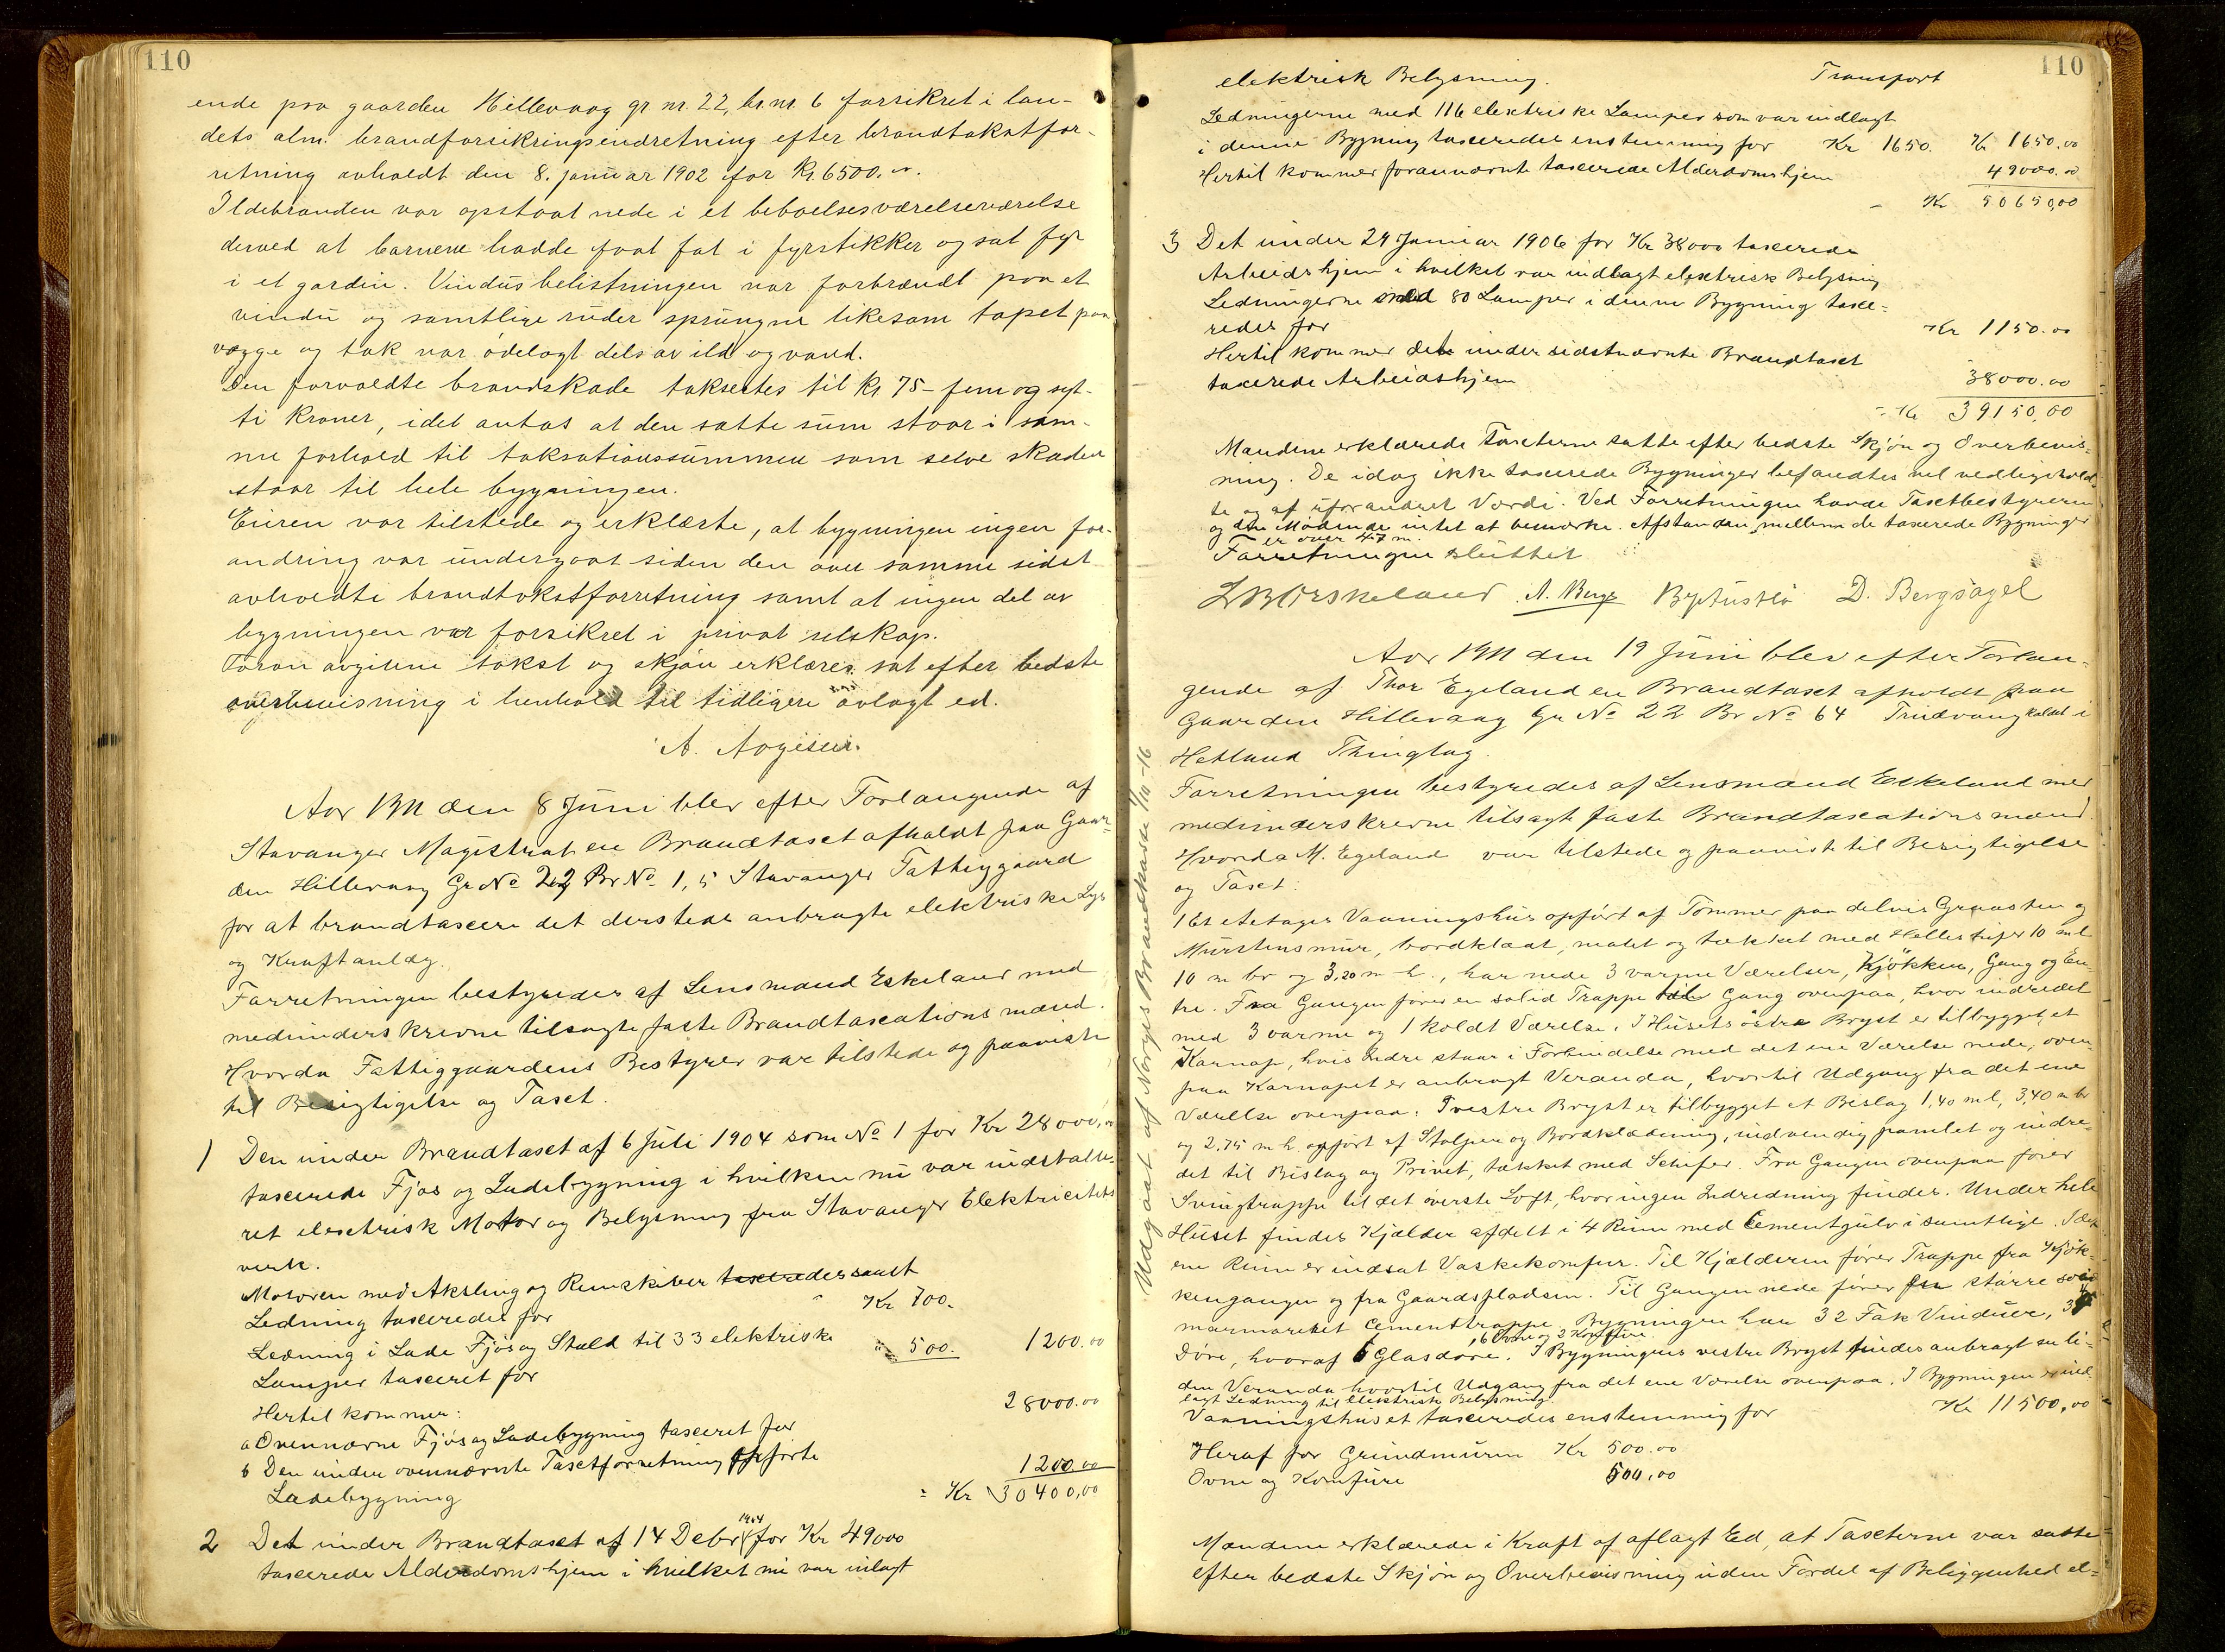 110
ende paa gaarden Hillevaag gr. nr. 22, br. nr. 6 forsikret i lan-
dets alm. brandforsikringsindretning efter brandtakstfor-
retning avholdt den 8. januar 1902 for kr. 6500.00.
Ildebranden var opstaat nede i et beboelsesværelseværelse
derved at barnene hadde faat fat i fyrstikker og sat fyr
i et gardin. Vindusbelistningen var forbrændt paa et
vindu og samtlige ruder sprungne likesom tapet paa
vægge og tak var ödelagt dels av ild og vand.
Den forvoldte brandskade taksertes til kr 75 – fem og syt-
ti kroner, idet antas at den satte sum staar i sam-
me forhold til taksationssummen som selve skaden
staar til hele bygningen.
Eieren var tilstede og erklærte, at bygningen ingen for-
andring var undergaat siden den over samme sidst
avholdte brandtakstforretning samt at ingen del av
bygningen var forsikret i privat selskap.
Foran avgivne takst og skjön erklæres sat efter bedste
overbevisning i henhold til tidligere avlagt ed.
Aar 1911 den 8 Juni blev efter Forlangende af
Stavanger Magistrat en Brandtaxt afholdt paa Gaar-
den Hillevaag Gr No 22 Br No 1,5 Stavanger Fattiggaard
for at brandtaxere det dersteds anbragte elektriske Lys
og Kraftanlæg.
Forretningen bestyredes af Lensmand Eskeland med
medunderskrevne tilsagte faste Brandtaxationsmænd.
Hvorda Fattiggaardens Bestyrer var tilstede og paaviste
til Besigtigelse og Taxt.
1 Den under Brandtaxt af 6 Juli 1904 som No 1 for Kr 28000,00
taxerede Fjøs og Ladebygning i hvilken nu var indstalle-
ret elextrisk Motor og Belysning fra Stavanger Elektricitets
verk.
Motoren med Aksling og Remskiver taxeredes samt
Ledning taxeredes for Kr 700.
Ledning i Lade Fjøs og Stald til 33 elektriske
Lamper taxeret for 500. 1200.00
Hertil kommer:
a Ovennævne Fjøs og Ladebygning taxeret for 28000.00
b Den under ovennævnte Taxtforretning opførte
Ladebygning 1200.00
= Kr 30400,00
2 Det under Brandtaxt af 14 Debr 1904 for Kr 49000
taxerede Alderdomshjem i hvilket nu var inlagt
110
elektrisk Belysning. Transport
Ledningerne med 116 elextriske Lamper som var indlagt
i denne Bygning taxeredes enstemmig for Kr 1650. Kr 1650.00
Hertil kommer forannævnte taxerede Alderdomshjem 49000.00
Kr 50650,00
3 Det under 24 Januar 1906 for Kr 38000 taxerede
Arbeidshjem i hvilket var indlagt elextrisk Belysning
Ledningerne med 80 Lamper i denne Bygning taxe-
redes for Kr 1150.00
Hertil kommer det under sidstnævnte Brandtaxt
taxerede Arbeidshjem 38000.00
= Kr 39150,00
Mændene erklærede Taxterne satte efter bedste Skjøn og Overbevis-
ning. De idag ikke taxerede Bygninger befandtes vel vedligehold-
te og af uforandret Værdi. Ved Forretningen havde Taxtbestyreren
og de Mødende intet at bemærke. Afstanden mellem de taxerede Bygninger
er over 47 m.
Forretningen sluttet
A. Berge D. Bergsagel
Aar 1911 den 19 Juni blev efter Forlan-
gende af Thor Egeland en Brandtaxt afholdt paa
Gaarden Hillevaag Gr No 22 Br No 64 Trudvang kaldet i
Hetland Thinglag.
Forretningen bestyredes af Lensmand Eskeland med
medunderskrevne tilsagte faste Brandtaxationsmænd.
Hvorda M. Egeland var tilstede og paaviste til Besigtigelse
og Taxt:
1 Et etetages Vaaningshus opført af Tømmer paa delvis Graasten og
Murstensmur, bordklædt, malet og tækket med Helleskifer 10 m l
10 m br og 3,20 m h., har nede 3 varme Værelser, Kjøkken, Gang og En-
tre. Fra Gangen fører en solid Trappe til Gang ovenpaa, hvor indredet
med 3 varme og 1 koldt Værelse. I Husets østre Bryst er tilbygget et
Karnap, hvis Indre staar i Forbindelse med det ene Værelse nede, oven-
paa Karnapet er anbragt Veranda, hvortil Udgang fra det ene
Værelse ovenpaa. I vestre Bryst er tilbygget et Bislag 1,40 m l, 3,40 m br
og 2,75 m h opført af Stolper og Bordklædning, indvendig panelet og indre-
det til Bislag og Privet, tækket med Schifer. Fra Gangen ovenpaa fører
Svingtrappe til det øverste Loft, hvor ingen Indredning findes. Under hele
Huset findes Kjælder afdelt i 4 Rum med Cementgulv i samtlige. I det
ene Rum er indsat Vaskekomfur. Til Kjælderen fører Trappe fra Kjøk-
kengangen og fra Gaardspladsen. Til Gangen nede fører en større
marmoreret Cementtrappe. Bygningen har 32 Fak Vinduer, 34
Døre, hvoraf 6 Glasdøre, 6 Ovne og 2 Komfure. I Bygningens vestre Bryst findes anbragt en li-
den Veranda hvortil Udgang fra det ene Værelse ovenpaa. I Bygningen er ind-
lagt Ledning til elektrisk Belysning.
Vaaningshuset taxeredes enstemmig for Kr 11500,00
Heraf for Grundmuren Kr 500.00
Ovne og Komfure 500,00
Mændene erklærede i Kraft af aflagt Ed, at Taxterne var satte
efter bedste Skjøn og Overbevisning uden Fordel af Beliggenhed el-
Udgaat af Norges Brandkasse